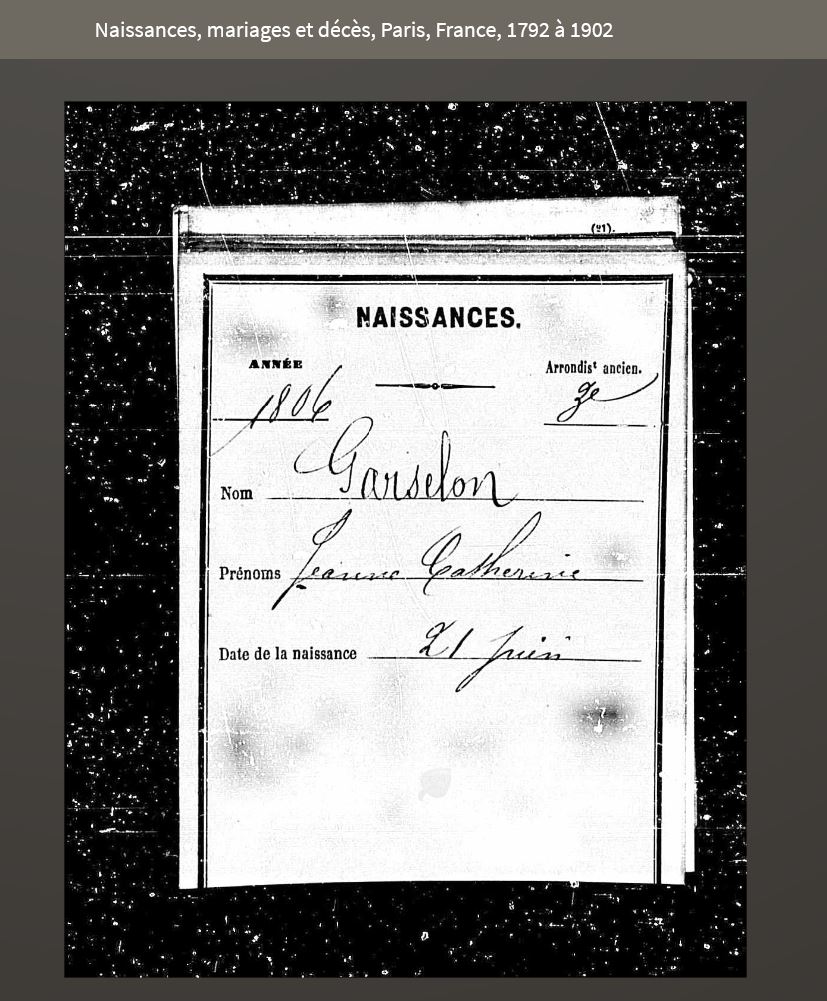 Naissances, mariages et décès, Paris, France, 1792 à 1902
NAISSANCES.
ANNÉE
Arrondisᵗ ancien.
1806
Nom Garselon
Prénoms Jeanne Catherine
Date de la naissance 21 juin